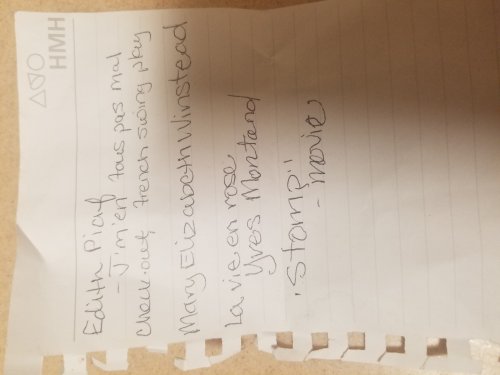 HMH
Edith Piaf
- J'm'en fous pas mal
check out french swing play
Mary Elizabeth Winstead
La vie en rose
Yves Montand
"Stomp"
- movie